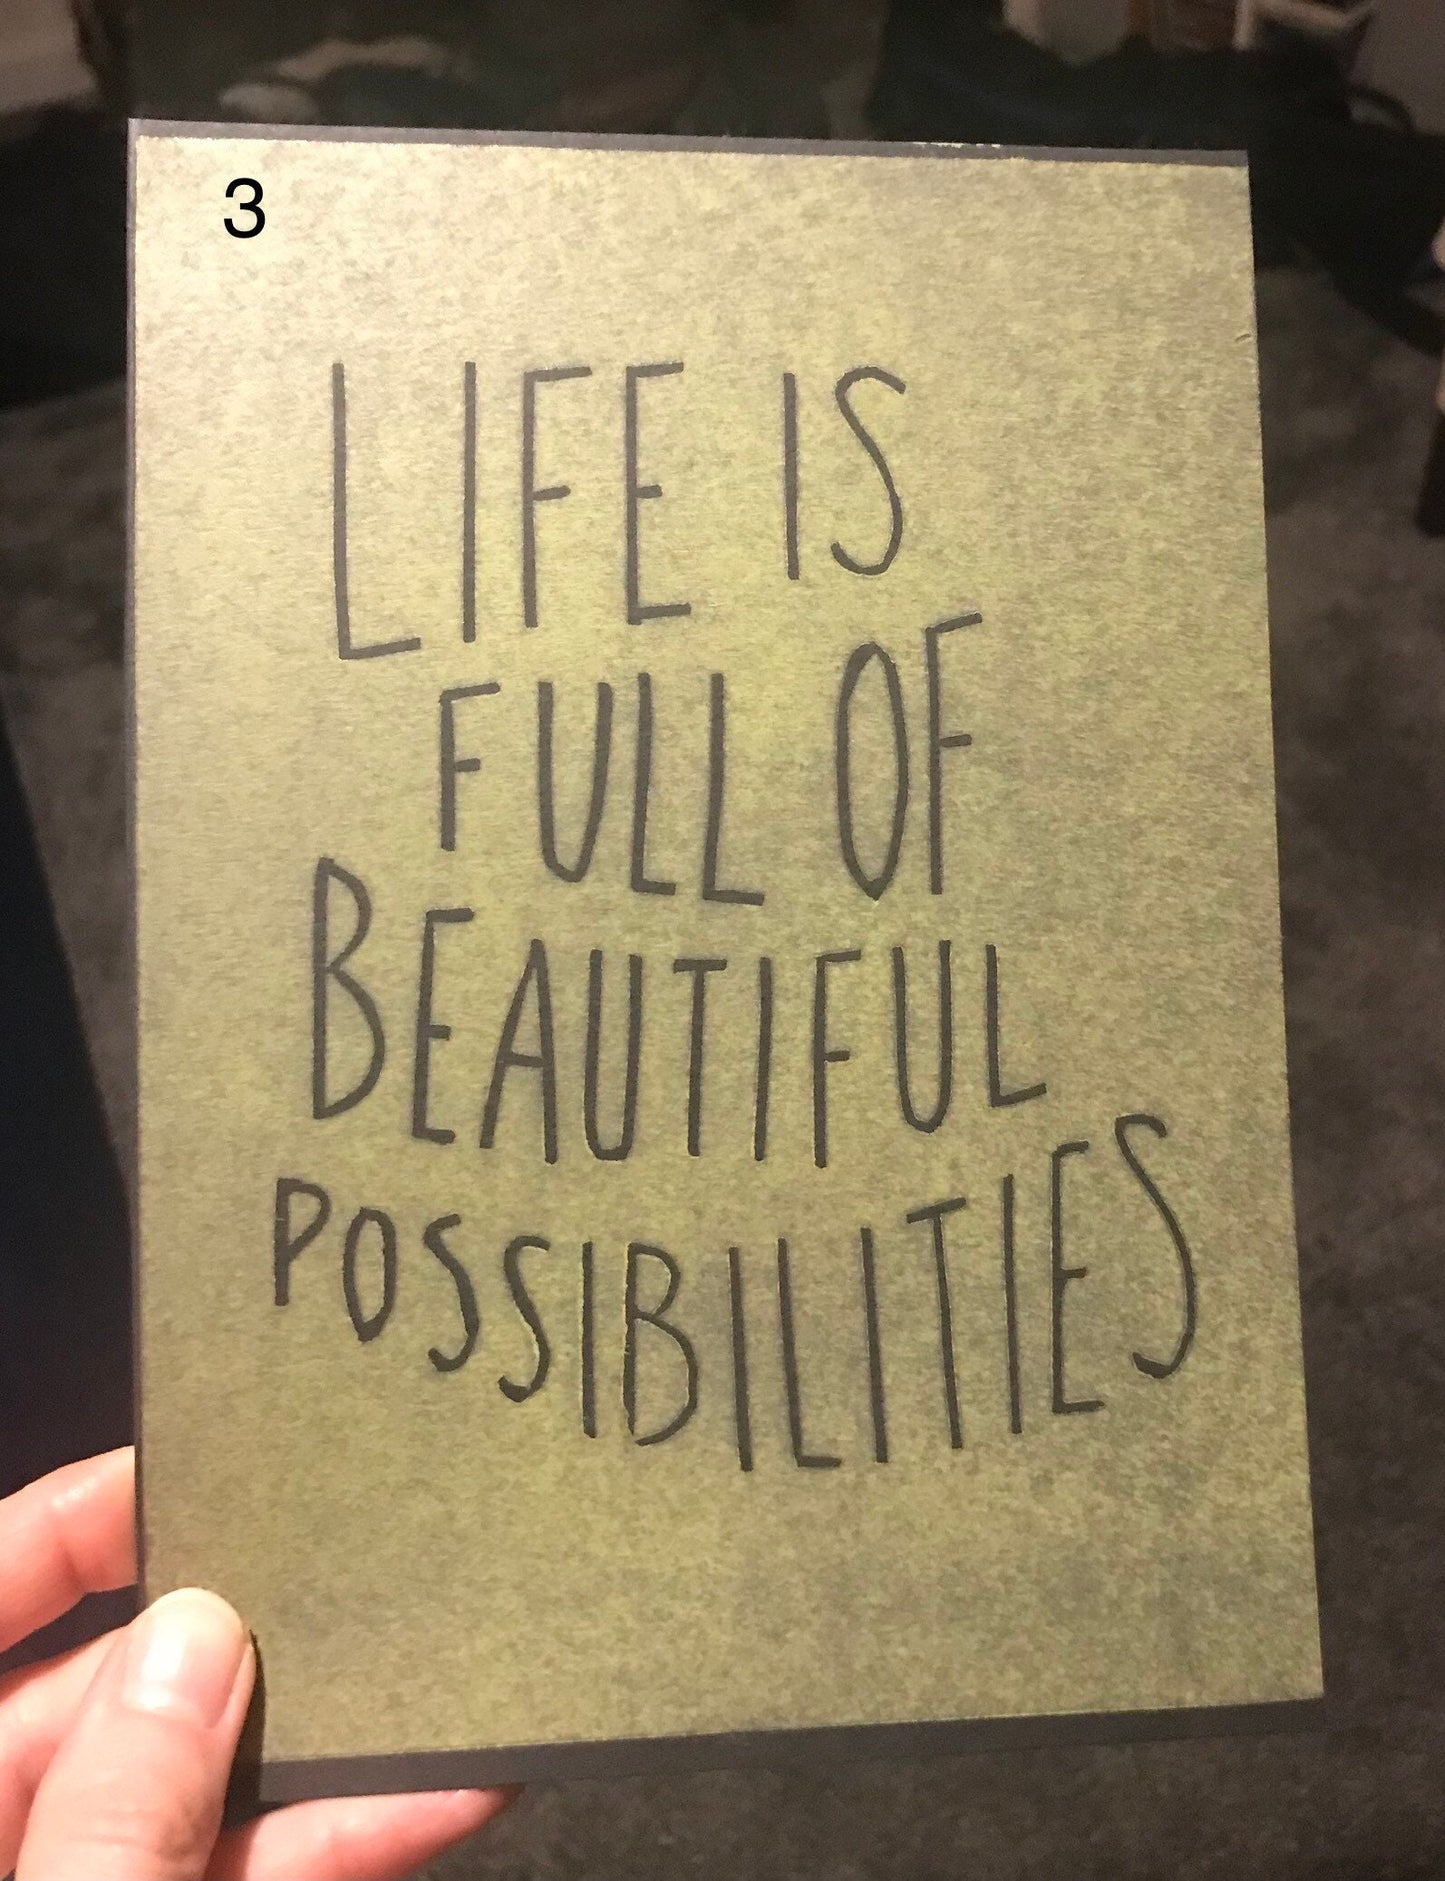 3
LIFE IS
FULL OF
BEAUTIFUL
POSSIBILITIES